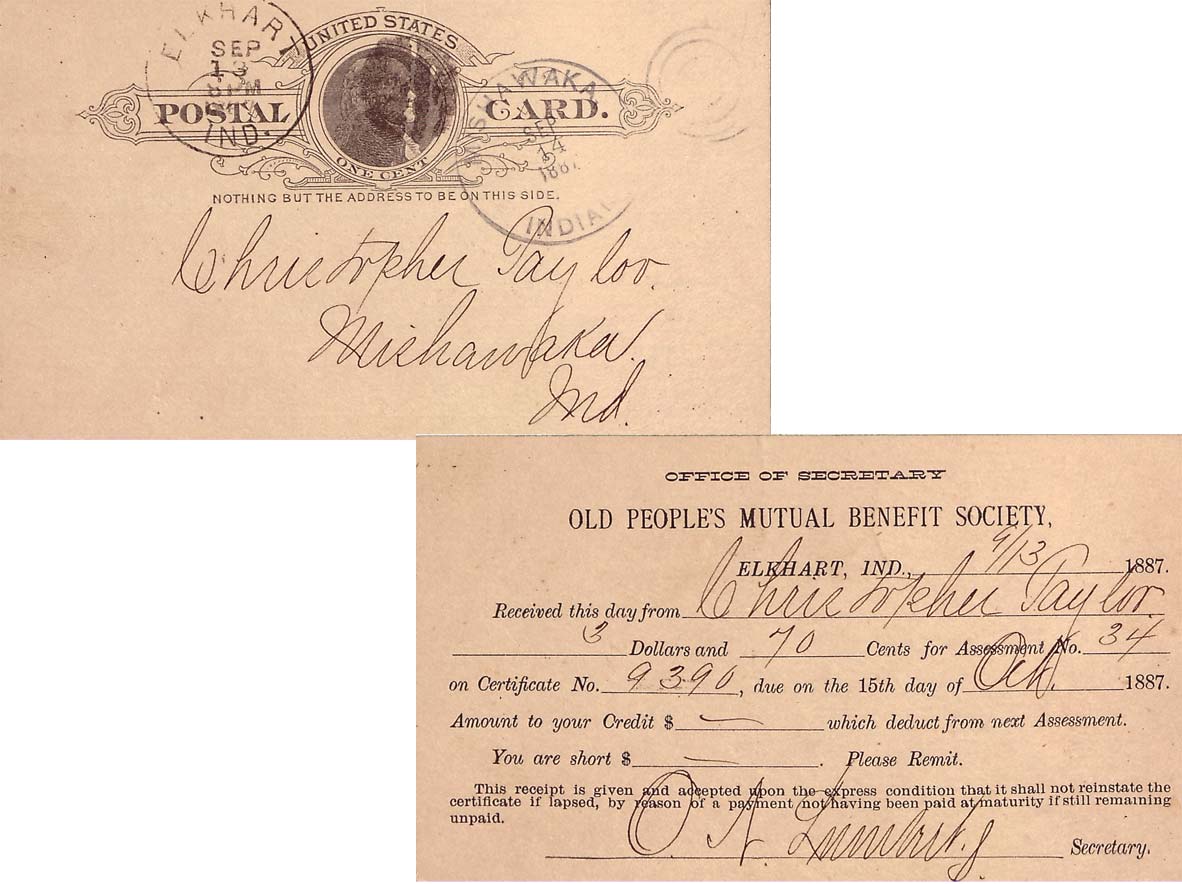 ELKHART
SEP
13
8PM
IND.
UNITED STATES
POSTAL CARD.
ONE CENT
SHAWAKA
SEP
14
1887
INDIA
NOTHING BUT THE ADDRESS TO BE ON THIS SIDE.
Christopher Taylor.
Mishawaka.
Ind.
OFFICE OF SECRETARY
OLD PEOPLE'S MUTUAL BENEFIT SOCIETY,
ELKHART, IND., 9/13 1887.
Received this day from Christopher Taylor
3 Dollars and 70 Cents for Assessment No. 34
on Certificate No. 9390, due on the 15th day of Oct. 1887.
Amount to your Credit $ — which deduct from next Assessment.
You are short $ — . Please Remit.
This receipt is given and accepted upon the express condition that it shall not reinstate the
certificate if lapsed, by reason of a payment not having been paid at maturity if still remaining
unpaid.
Secretary.